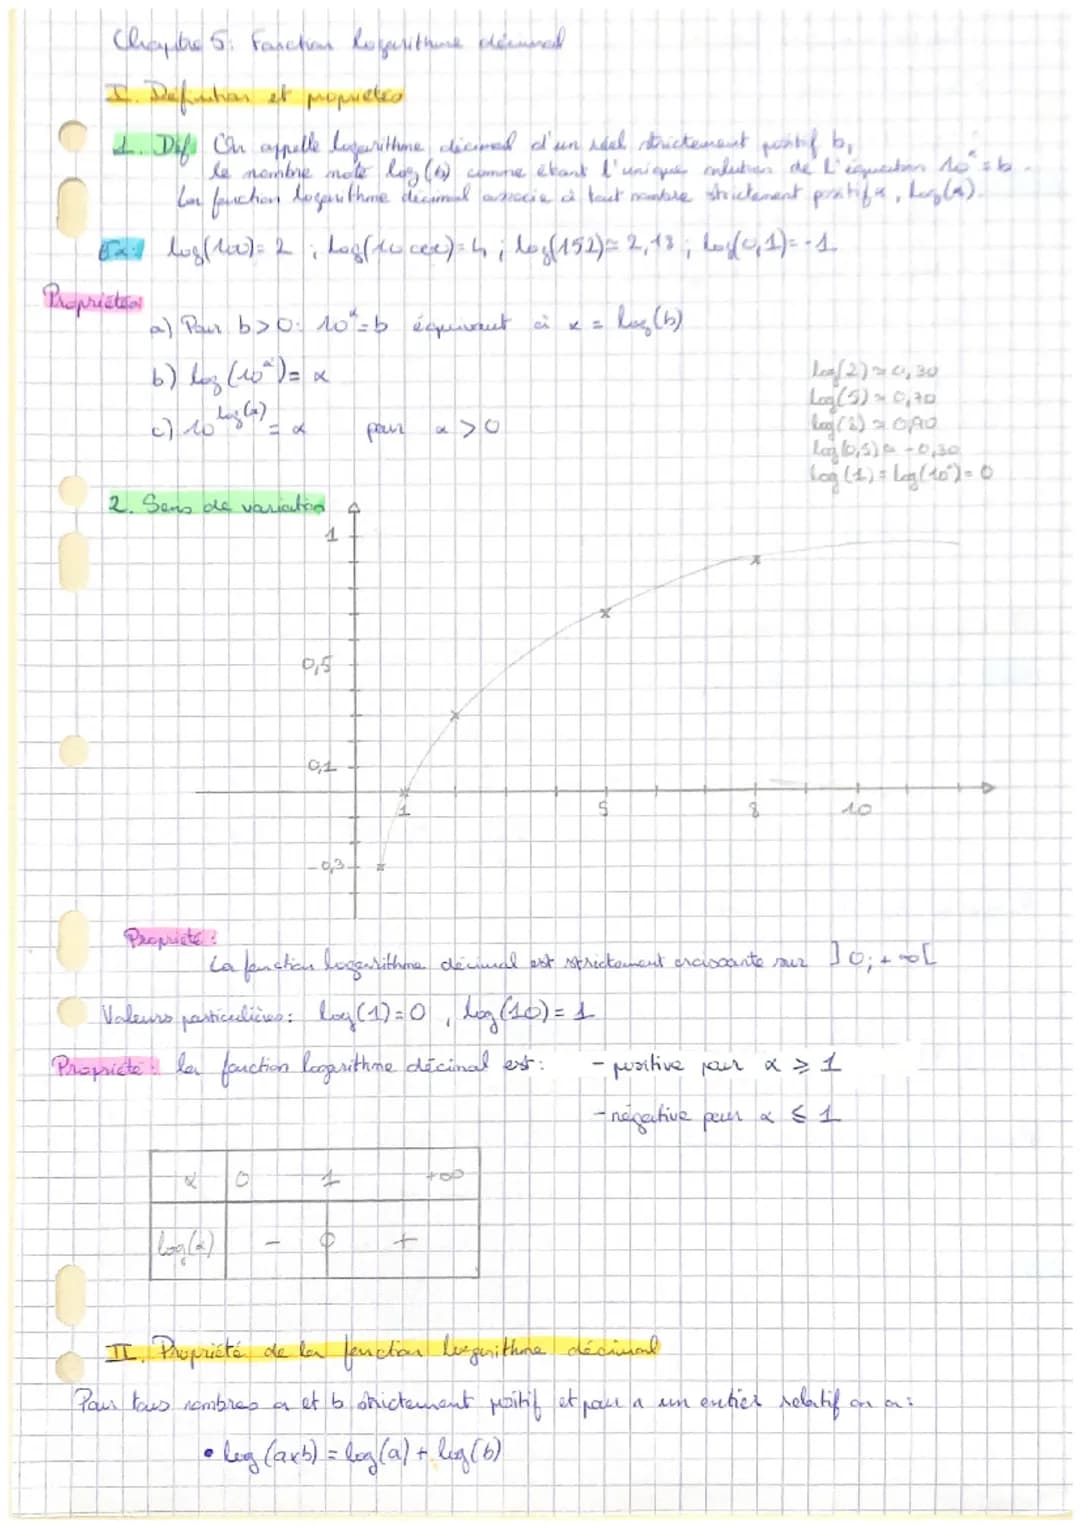 Chapitre 5: Fonction logarithme décimal
I. Définition et propriétés
1. Déf On appelle logarithme décimal d'un réel strictement positif b,
le nombre noté log(b) comme étant l'unique solution de l'équation 10ˣ = b.
La fonction logarithme décimal associe à tout nombre strictement positif x, log(x).
Ex: log(100) = 2 ; log(10 000) = 4 ; log(152) ≈ 2,18 ; log(0,1) = -1
Propriétés
a) Pour b > 0: 10ˣ = b équivaut à x = log(b)
b) log(10ˣ) = x
c) 10^log(x) = x pour x > 0
log(2) ≈ 0,30
log(5) ≈ 0,70
log(8) ≈ 0,90
log(0,5) ≈ -0,30
log(1) = log(10⁰) = 0
2. Sens de variation
1
0,5
0,1
1 5 8 10
-0,3
Propriété:
La fonction logarithme décimal est strictement croissante sur ]0; +∞[
Valeurs particulières: log(1) = 0, log(10) = 1
Propriété: la fonction logarithme décimal est: - positive pour x ≥ 1
- négative pour x ≤ 1
x 0 1 +∞
log(x) - 0 +
II. Propriété de la fonction logarithme décimal
Pour tous nombres a et b strictement positif et pour n un entier relatif on a:
• log(a×b) = log(a) + log(b)